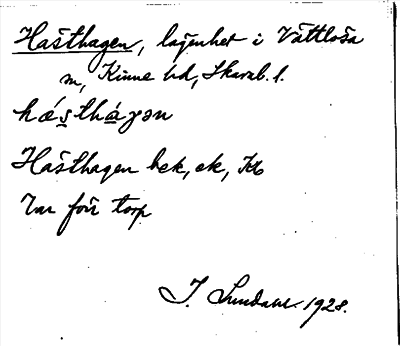 Hästhagen, lägenhet i Vättlösa
sn, Kinne hd, Skarab. l.
hǽsthágən
Hästhagen bek, ek, Kb
Var förr torp
J. Sundahl 1928.